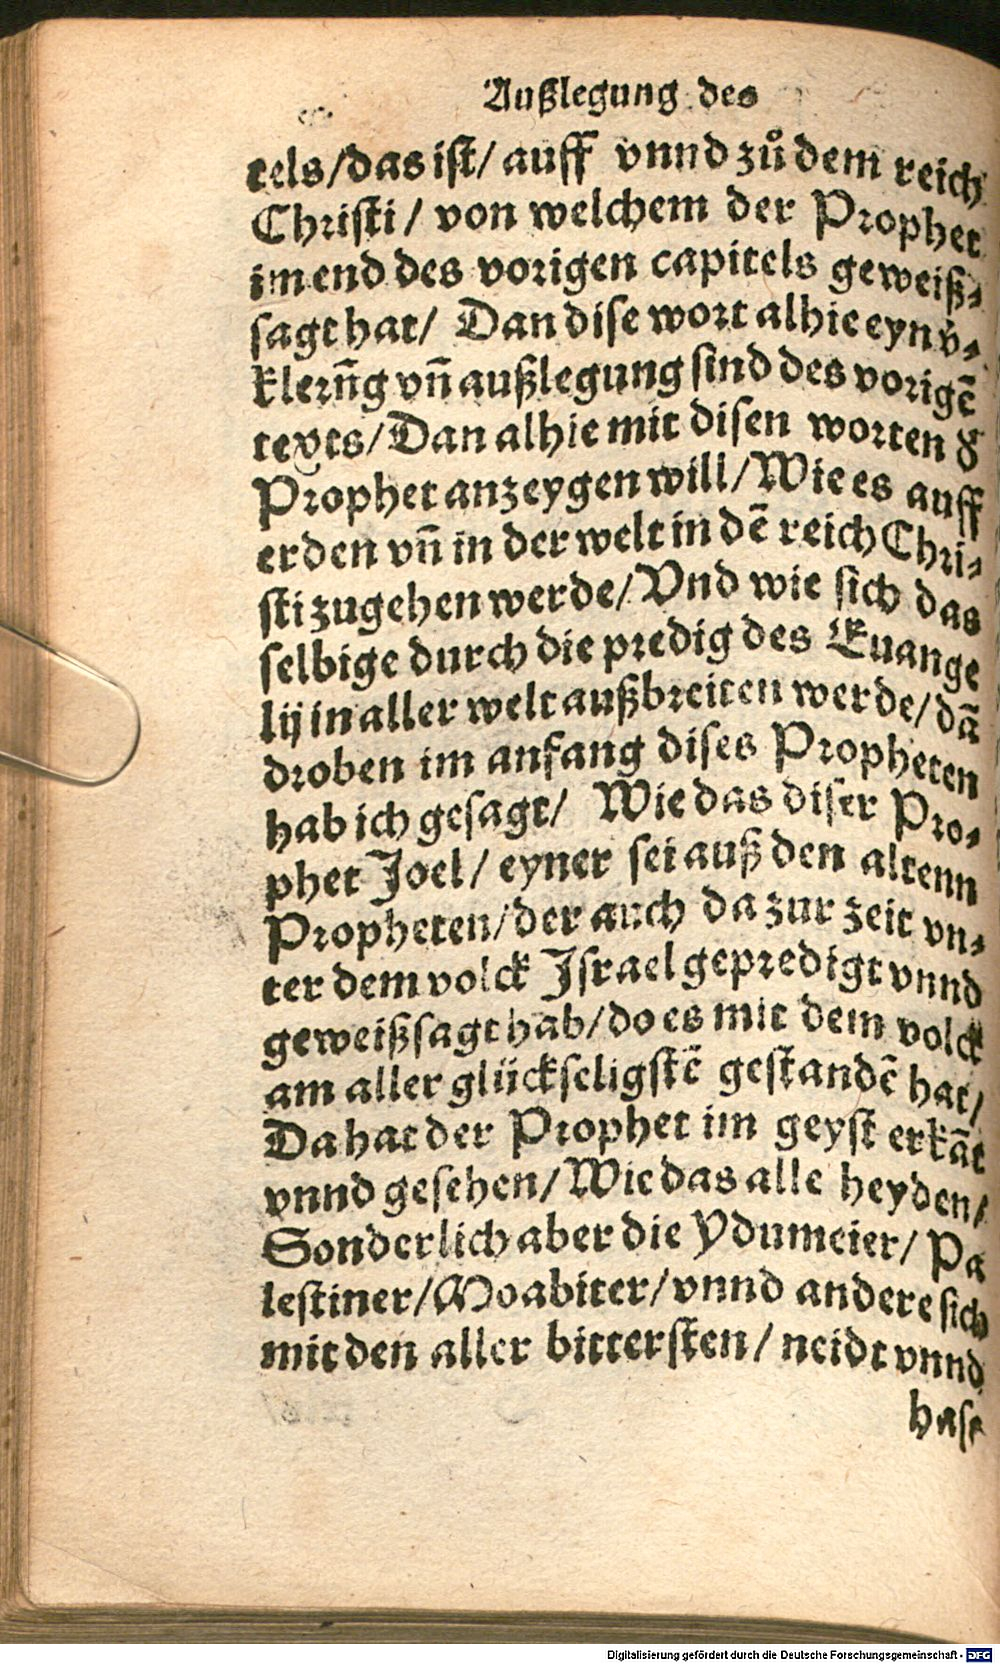 Außlegung des
tels/das ist/ auff vnnd zuͦ dem reich
Christi/ von welchem der Prophet
im end des vorigen capitels geweiß⸗
sagt hat/ Dan dise wort alhie eyn v̈⸗
klerñg vñ außlegung sind des vorigẽ
texts/Dan alhie mit disen worten ď
Prophet anzeygen will/Wie es auff
erden vñ in der welt in dẽ reich Chri⸗
sti zugehen werde/Vnd wie sich das
selbige durch die predig des Euange
lij in aller welt außbreiten werde/dã
droben im anfang dises Propheten
hab ich gesagt/ Wie das diser Pro⸗
phet Joel/ eyner sei auß den altenn
Propheten/der auch da zur zeit vn⸗
ter dem volck Israel gepredigt vnnd
geweißsagt hab/do es mit dem volck
am aller glückseligstẽ gestandẽ hat/
Da hat der Prophet im geyst erkãt
vnnd gesehen/Wie das alle heyden/
Sonderlich aber die Ydumeier/ Pa
lestiner/Moabiter/vnnd andere sich
mit den aller bittersten/ neidt vnnd
hass
Digitalisierung gefördert durch die Deutsche Forschungsgemeinschaft - DFG